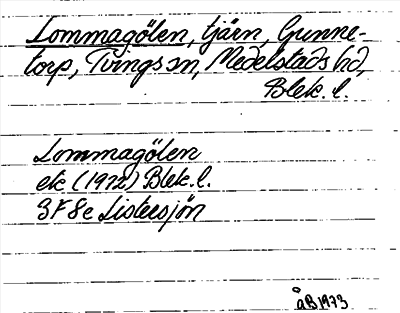 Lommagölen, tjärn, Gunne-
torp, Tvings sn, Medelstads hd,
Blek. l.
Lommagölen
ek (1972) Blek. l.
3F8e Listersjön
ÅB 1973